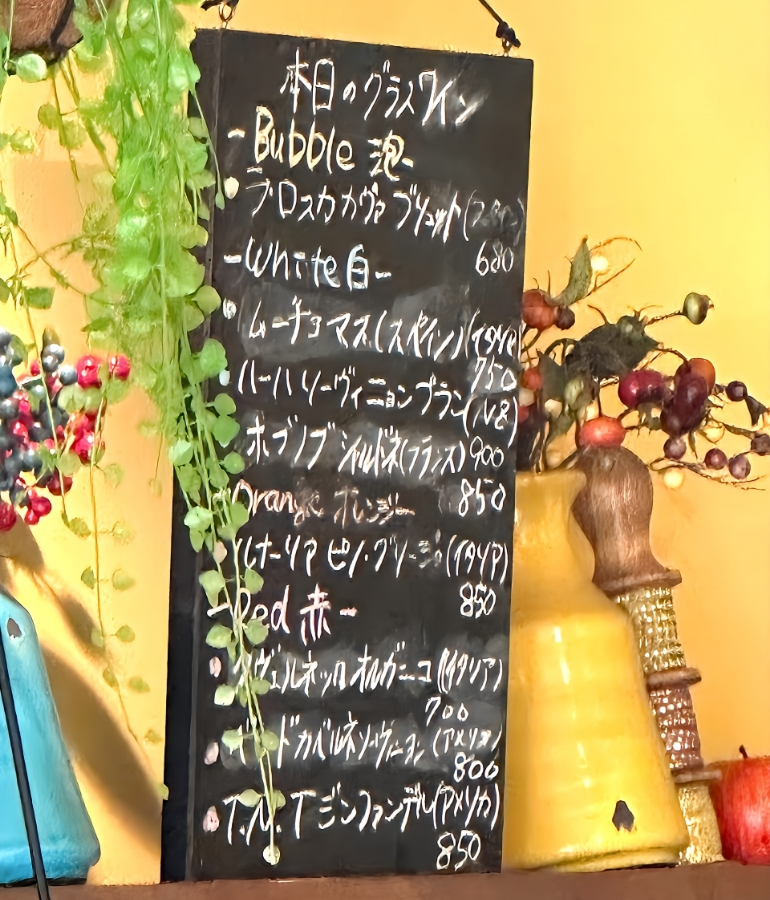 本日のグラスワイン
-Bubble 泡-
・ブロスカ カヴァ ブリュット(スペイン)
680
-White 白-
・ムーチョ マス(スペイン)
750
ソーヴィニヨンブラン
ホブノブ シャルドネ(フランス)900
Orange オレンジー
850
ルナーリア ピノ・グリージョ(イタリア)
850
-Red 赤-
タヴェルネッロ オルガニコ(イタリア)
700
カベルネソーヴィニヨン(アメリカ)
800
・T.N.T ジンファンデル(アメリカ)
850